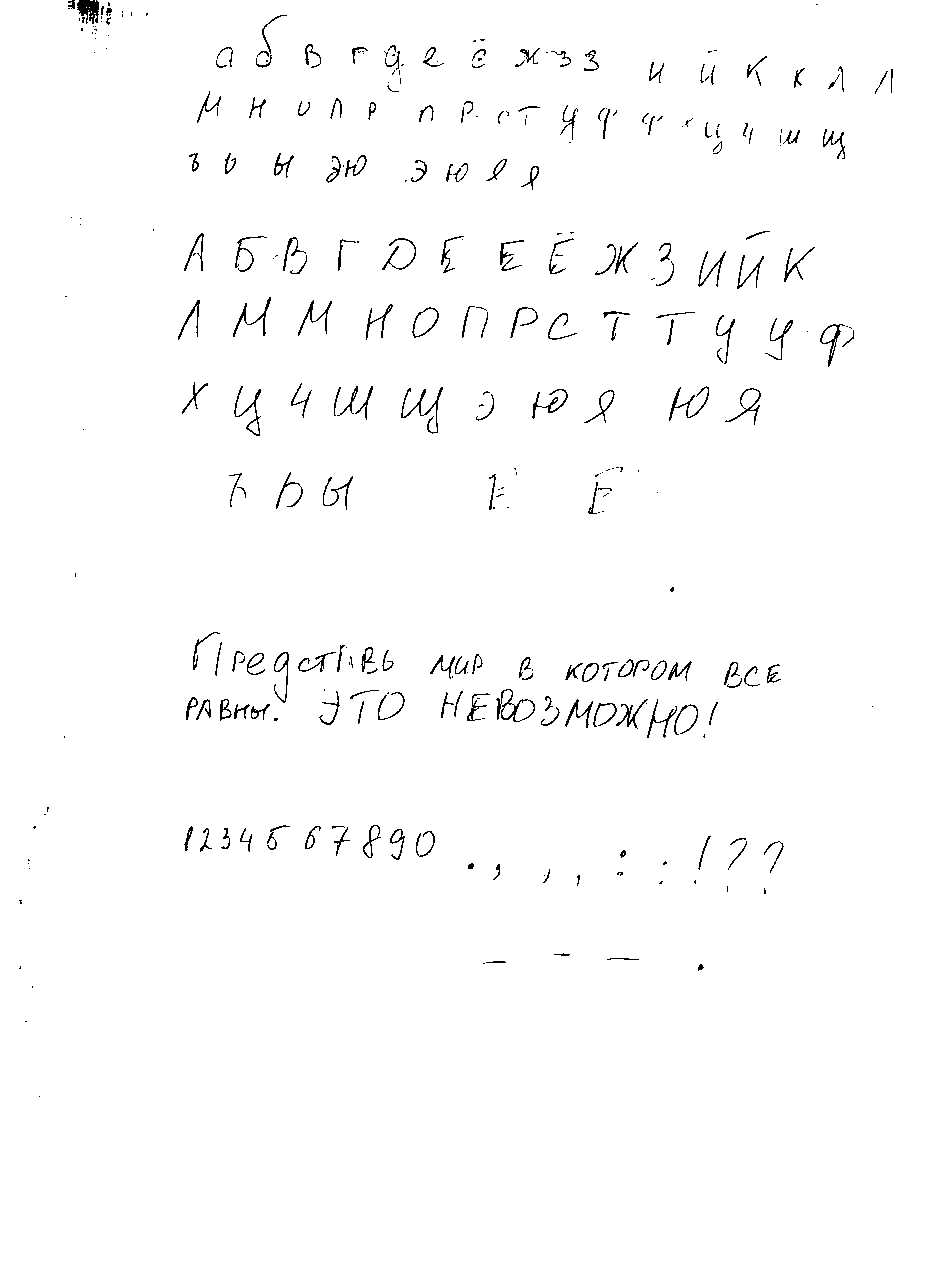 а б в г д е ё ж з з и й к к л л
м н о п р п р с т у ф ф х ц ч ш щ
ъ ь ы э ю э ю я я
А Б В Г Д Е Е Ё Ж З И Й К
Л М М Н О П Р С Т Т У У Ф
Х Ц Ч Ш Щ Э Ю Я Ю Я
Ъ Ь Ы Е Ё
Представь мир в котором все
равны. ЭТО НЕВОЗМОЖНО!
1234567890 . , , , : : ! ? ?
– – — .